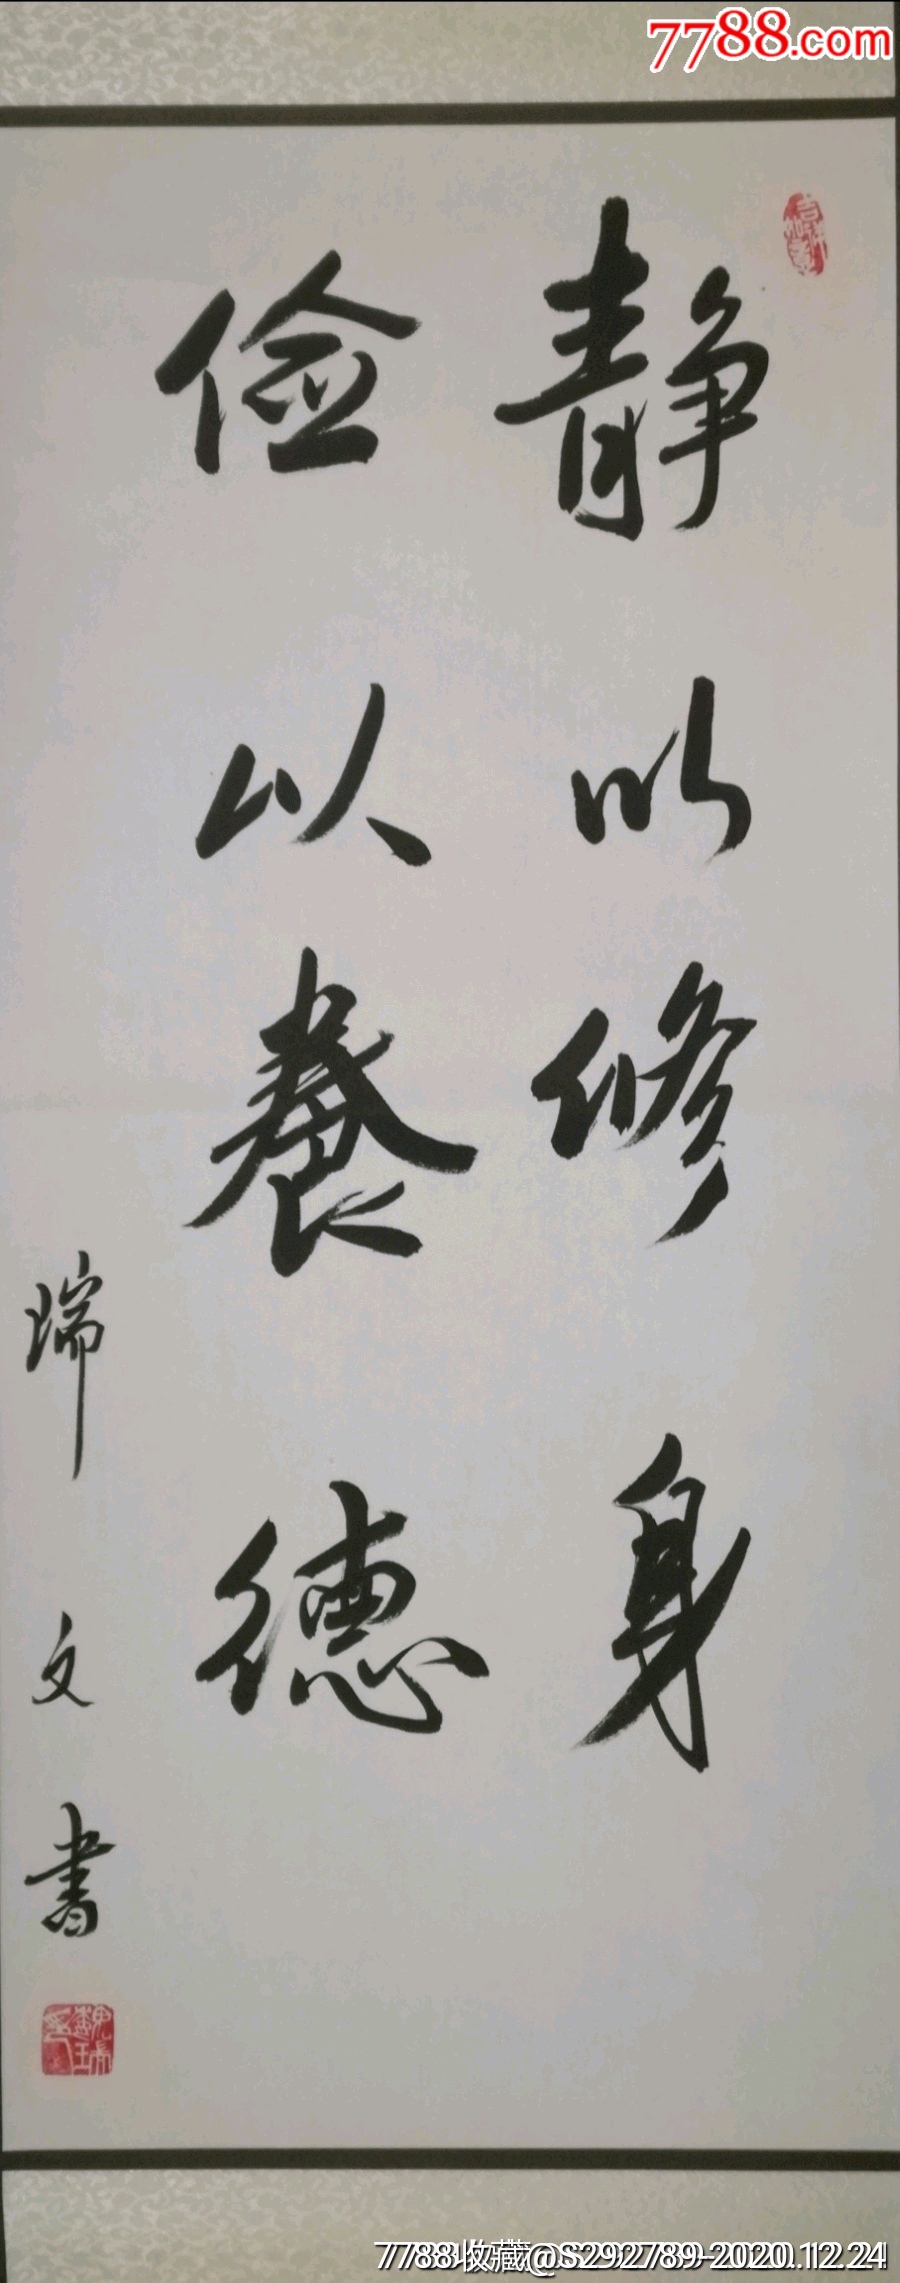 7788.com
吉祥如意
静以修身
俭以養德
瑞文書
7788收藏@S292789-2020.12.24